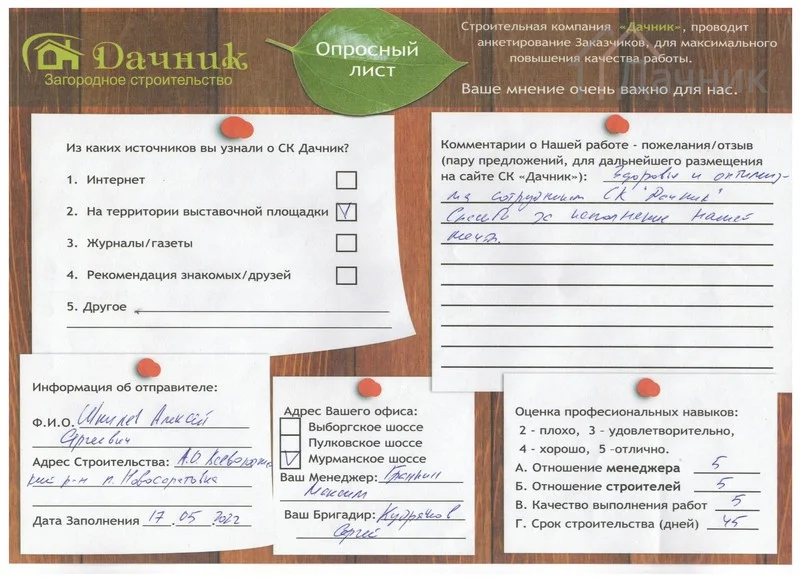 Дачник
Загородное строительство
Опросный
лист
Строительная компания «Дачник», проводит
анкетирование Заказчиков, для максимального
повышения качества работы.
Ваше мнение очень важно для нас.
Дачник
Из каких источников вы узнали о СК Дачник?
1. Интернет
2. На территории выставочной площадки
3. Журналы/газеты
4. Рекомендация знакомых/друзей
5. Другое
Комментарии о Нашей работе - пожелания/отзыв
(пару предложений, для дальнейшего размещения
на сайте СК «Дачник»): Здоровья и оптимиз-
ма сотрудникам СК "Дачник"
Спасибо за исполнение нашей
мечты.
Информация об отправителе:
Ф.И.О. Алексей
Сергеевич
Адрес Строительства: Л.О. Всеволож-
ский р-н п. Новосаратовка
Дата Заполнения 17.05.2022
Адрес Вашего офиса:
Выборгское шоссе
Пулковское шоссе
Мурманское шоссе
Ваш Менеджер:
Максим
Ваш Бригадир: Кудряшов
Сергей
Оценка профессиональных навыков:
2 - плохо, 3 - удовлетворительно,
4 - хорошо, 5 -отлично.
А. Отношение менеджера 5
Б. Отношение строителей 5
В. Качество выполнения работ 5
Г. Срок строительства (дней) 45